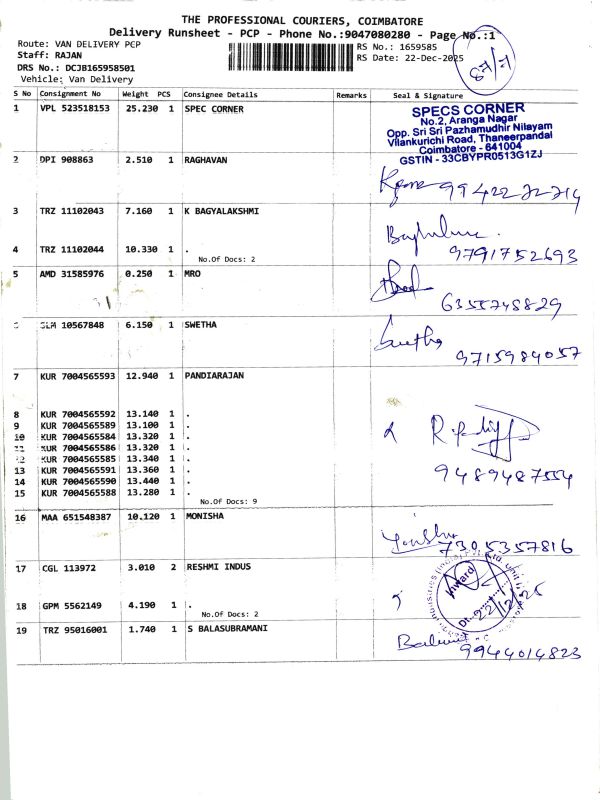 THE PROFESSIONAL COURIERS, COIMBATORE
Delivery Runsheet - PCP - Phone No.:9047080280 - Page No.:1
Route: VAN DELIVERY PCP
Staff: RAJAN
DRS No.: DCJB165958501
Vehicle: Van Delivery
RS No.: 1659585
RS Date: 22-Dec-2025
S No Consignment No Weight PCS Consignee Details Remarks Seal & Signature
1 VPL 523518153 25.230 1 SPEC CORNER
SPECS CORNER
No.2, Aranga Nagar
Opp. Sri Sri Pazhamudhir Nilayam
Vilankurichi Road, Thaneerpandal
Coimbatore - 641004
GSTIN - 33CBYPR0513G1ZJ
2 DPI 908863 2.510 1 RAGHAVAN
9942272714
3 TRZ 11102043 7.160 1 K BAGYALAKSHMI
4 TRZ 11102044 10.330 1 .
No.Of Docs: 2
9791752693
5 AMD 31585976 0.250 1 MRO
6355748829
SLM 10567848 6.150 1 SWETHA
Swetha
9715984057
7 KUR 7004565593 12.940 1 PANDIARAJAN
8 KUR 7004565592 13.140 1 .
9 KUR 7004565589 13.100 1 .
10 KUR 7004565584 13.320 1 .
11 KUR 7004565586 13.320 1 .
12 KUR 7004565585 13.340 1 .
13 KUR 7004565591 13.360 1 .
14 KUR 7004565590 13.440 1 .
15 KUR 7004565588 13.280 1 .
No.Of Docs: 9
9489487554
16 MAA 651548387 10.120 1 MONISHA
7305357816
17 CGL 113972 3.010 2 RESHMI INDUS
18 GPM 5562149 4.190 1 .
No.Of Docs: 2
Inward
Dt. 22/12/25
19 TRZ 95016001 1.740 1 S BALASUBRAMANI
9944014823